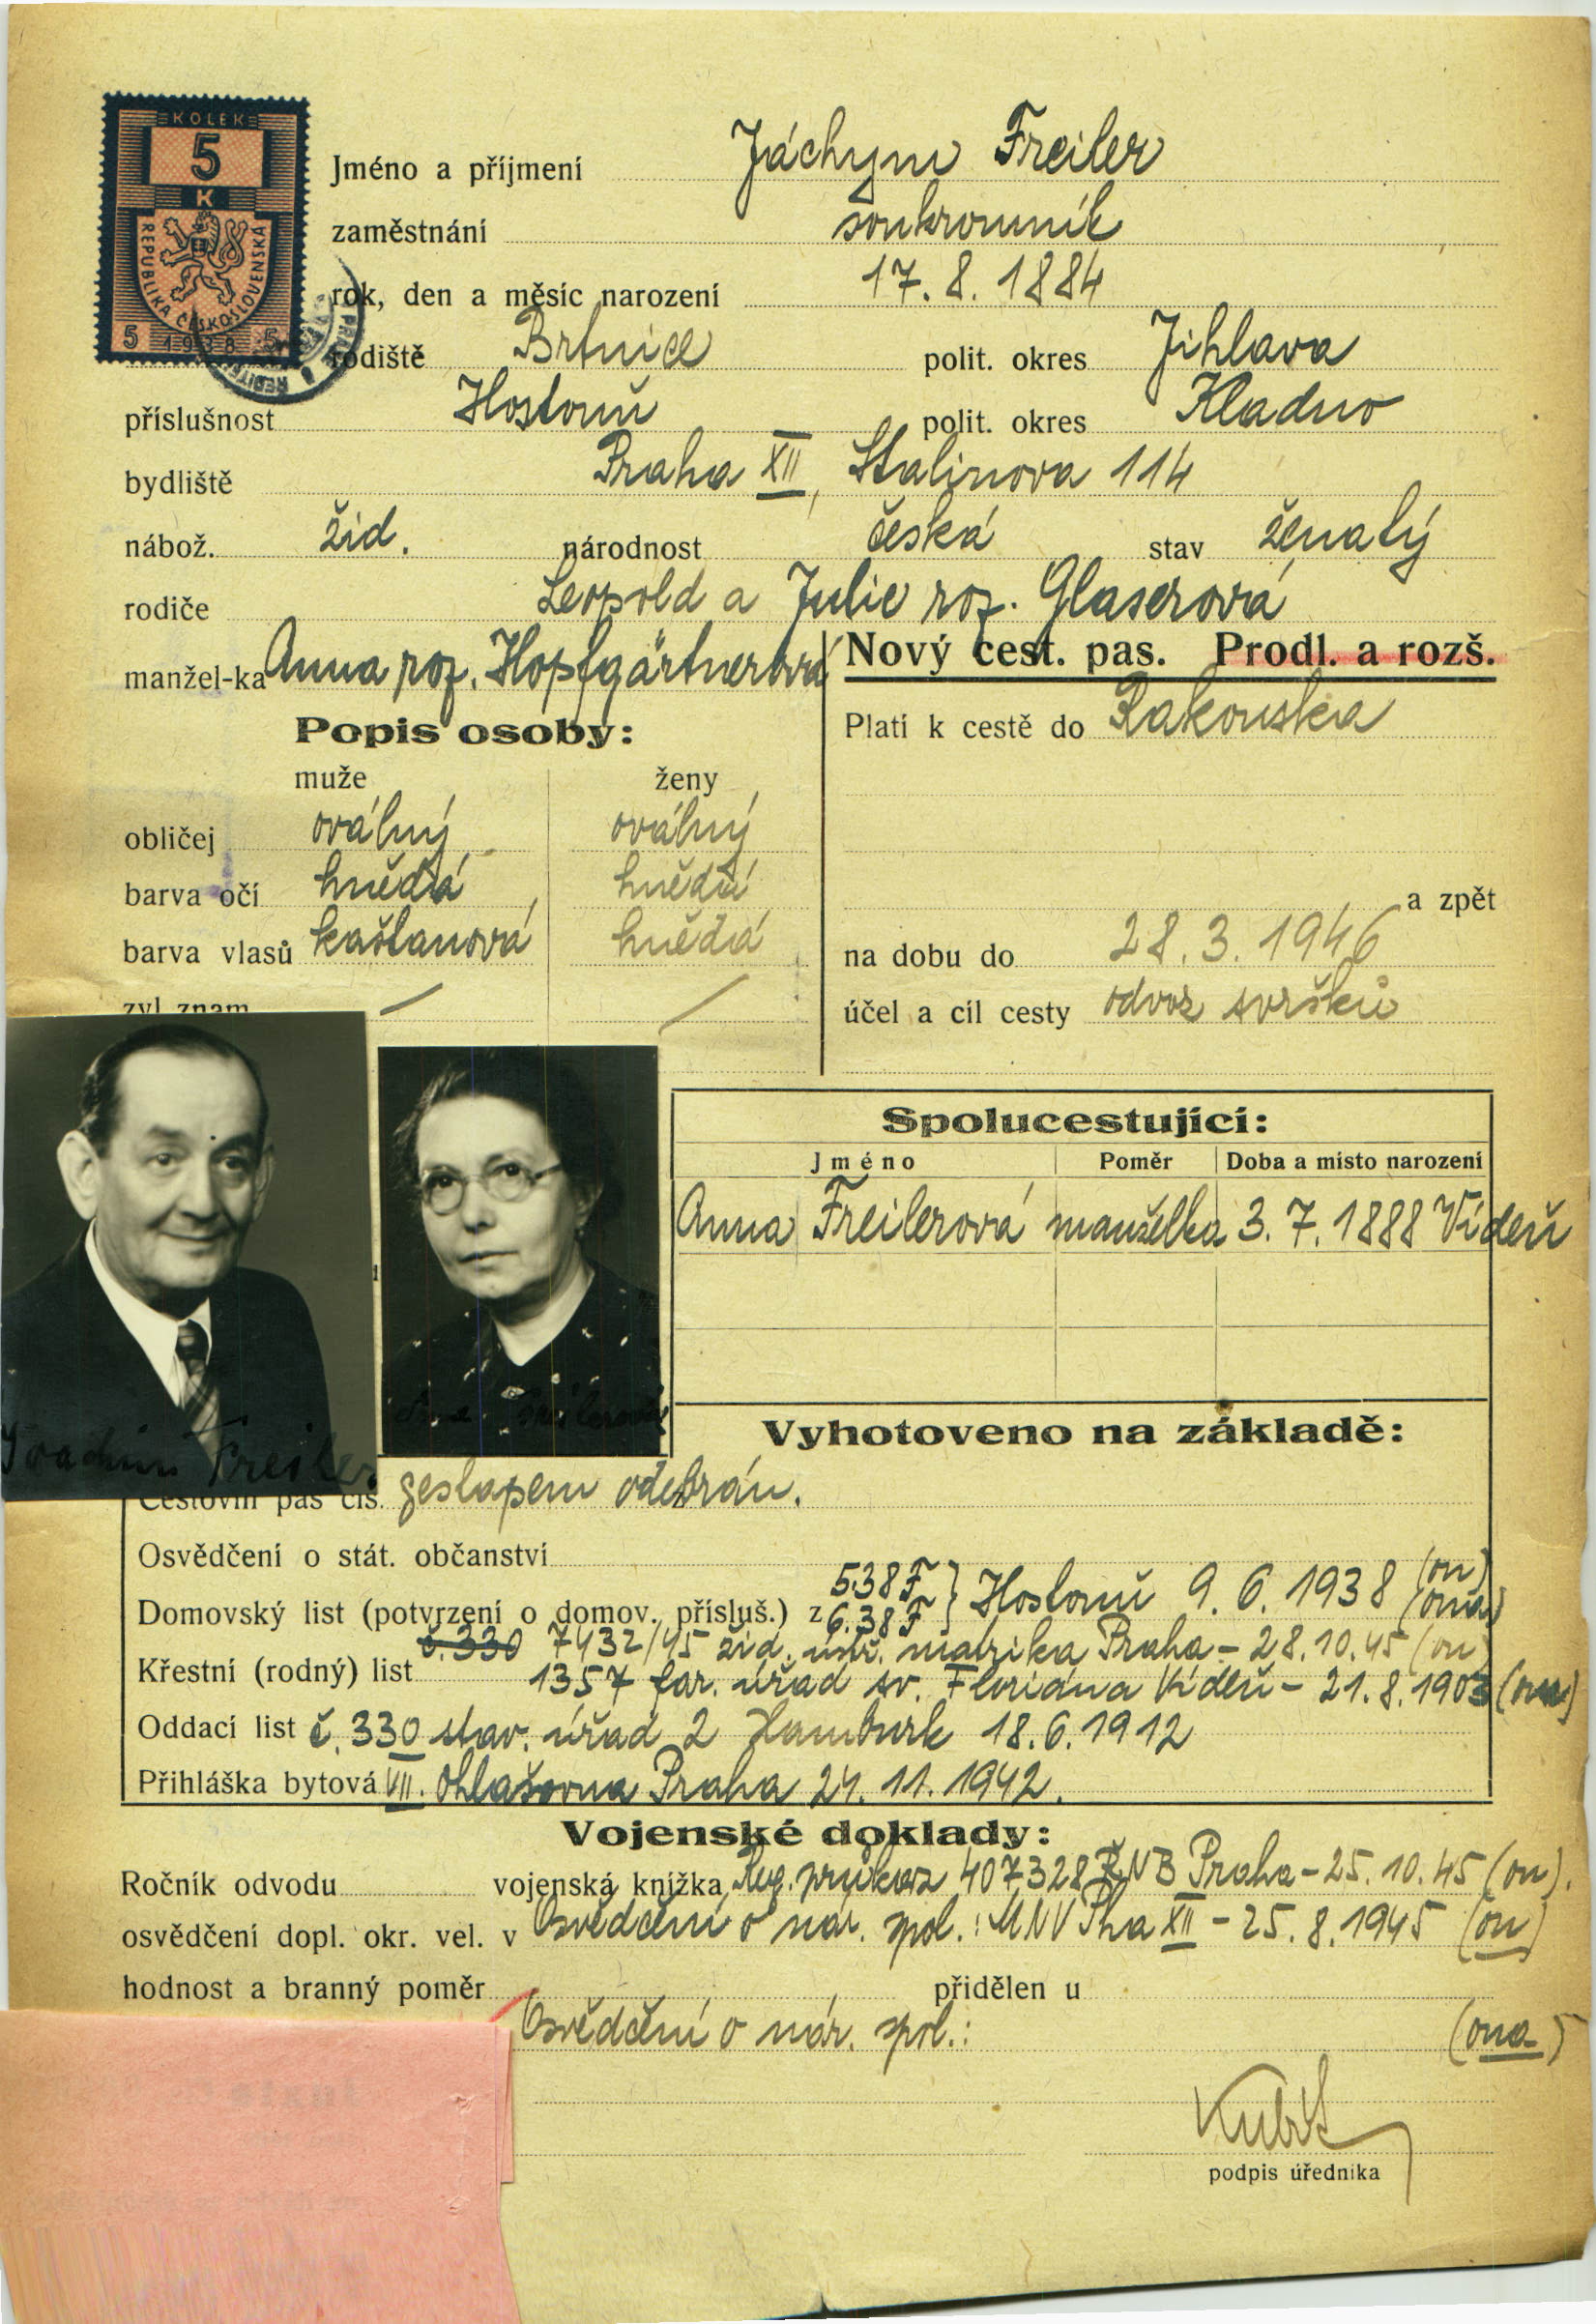 KOLEK
5
K
REPUBLIKA ČESKOSLOVENSKÁ
5 1938 5
Jméno a příjmení Jáchym Freiler
zaměstnání soukromník
rok, den a měsíc narození 17. 8. 1884
rodiště Brtnice polit. okres Jihlava
příslušnost Hostouň polit. okres Kladno
bydliště Praha XII, Stalinova 114
nábož. žid. národnost česká stav ženatý
rodiče Leopold a Julie roz. Glaserová
manžel-ka Anna roz. Hopfgärtnerová
Nový cest. pas. Prodl. a rozš.
Popis osoby:
Platí k cestě do Rakouska
muže ženy
obličej oválný oválný
barva očí hnědá hnědá
a zpět
barva vlasů kaštanová hnědá
na dobu do 28. 3. 1946
zvl. znam. — —
účel a cíl cesty odvoz svršků
Spolucestující:
Jméno Poměr Doba a místo narození
Anna Freilerová manželka 3. 7. 1888 Vídeň
Joachim Freiler
Vyhotoveno na základě:
Cestovní pas čís. gestapem odebrán.
Osvědčení o stát. občanství
Domovský list (potvrzení o domov. přísluš.) z 538 F 6.38 F } Hostouň 9. 6. 1938 (on) (ona)
č. 330 7432/45 žid. ústř. matrika Praha - 28.10.45 (on)
Křestní (rodný) list 1357 far. úřad sv. Floriána Vídeň - 21. 8. 1903 (ona)
Oddací list č. 330 stav. úřad 2 Hamburk 18. 6. 1912
Přihláška bytová VII. ohlašovna Praha 24. 11. 1942.
Vojenské doklady:
Ročník odvodu vojenská knížka Reg. průkaz 407328 ŘNB Praha - 25. 10. 45 (on).
osvědčení dopl. okr. vel. v Osvědčení o nár. spol.: MNV Pha XII - 25. 8. 1945 (on)
hodnost a branný poměr přidělen u
Osvědčení o nár. spol.: (ona)
podpis úředníka